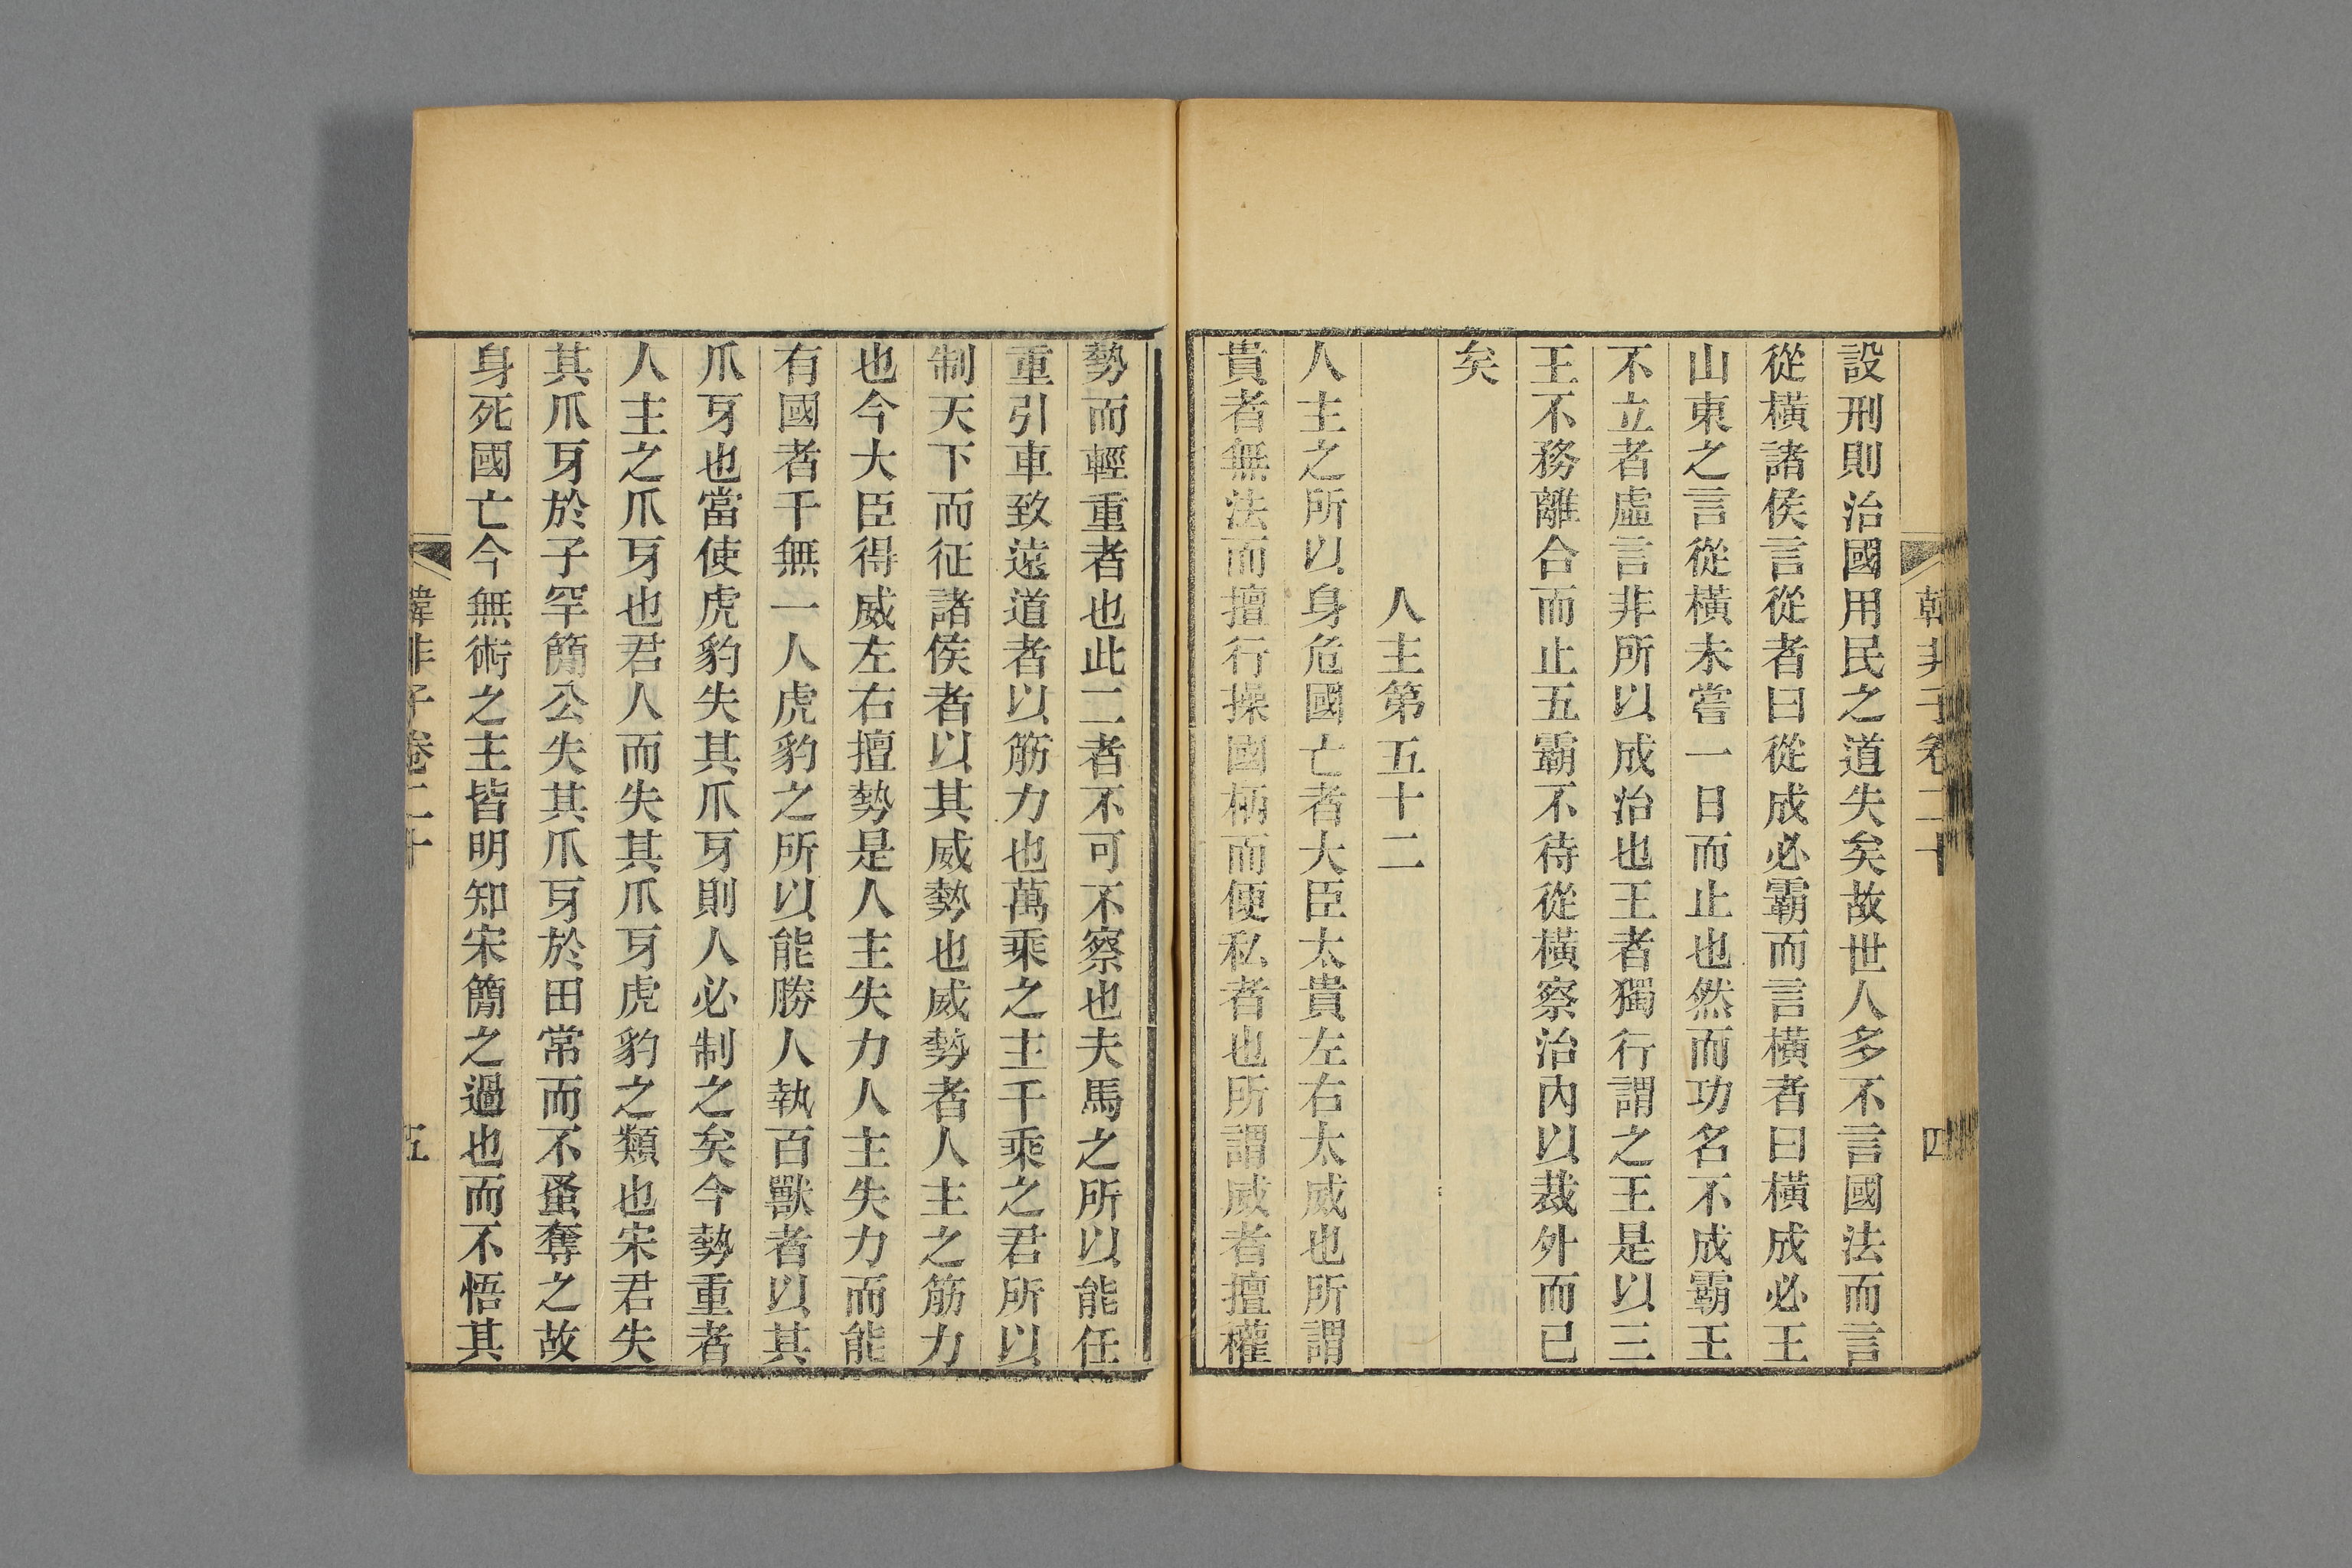 韓非子卷二十 四
設刑則治國用民之道失矣故世人多不言國法而言
從橫諸侯言從者曰從成必霸而言橫者曰橫成必王
山東之言從橫未嘗一日而止也然而功名不成霸王
不立者虛言非所以成治也王者獨行謂之王是以三
王不務離合而止五霸不待從橫察治內以裁外而已
矣
人主第五十二
人主之所以身危國亡者大臣太貴左右太威也所謂
貴者無法而擅行操國柄而便私者也所謂威者擅權
勢而輕重者也此二者不可不察也夫馬之所以能任
重引車致遠道者以筋力也萬乘之主千乘之君所以
制天下而征諸侯者以其威勢也威勢者人主之筋力
也今大臣得威左右擅勢是人主失力人主失力而能
有國者千無一人虎豹之所以能勝人執百獸者以其
爪牙也當使虎豹失其爪牙則人必制之矣今勢重者
人主之爪牙也君人而失其爪牙虎豹之類也宋君失
其爪牙於子罕簡公失其爪牙於田常而不蚤奪之故
身死國亡今無術之主皆明知宋簡之過也而不悟其
韓非子卷二十 五